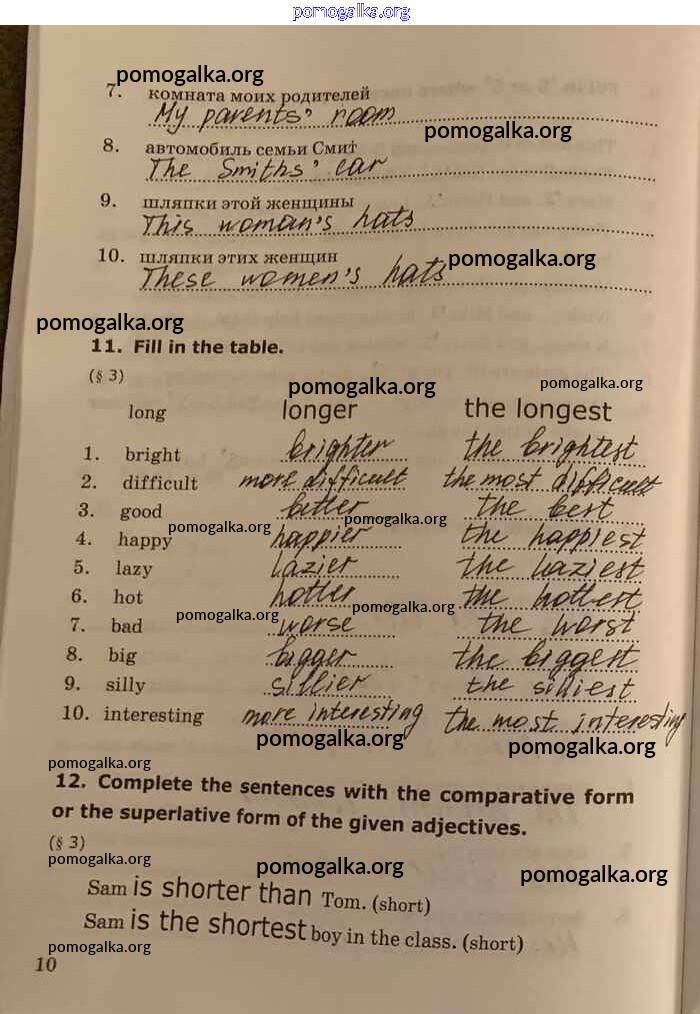 pomogalka.org
pomogalka.org
7. комната моих родителей
My parents' room
pomogalka.org
8. автомобиль семьи Смит
The Smiths' car
9. шляпки этой женщины
This woman's hats
10. шляпки этих женщин
pomogalka.org
These women's hats
pomogalka.org
11. Fill in the table.
(§ 3)
pomogalka.org pomogalka.org
long longer the longest
1. bright brighter the brightest
2. difficult more difficult the most difficult
3. good better the best
pomogalka.org pomogalka.org
4. happy happier the happiest
5. lazy lazier the laziest
6. hot hotter the hottest
pomogalka.org pomogalka.org
7. bad worse the worst
8. big bigger the biggest
9. silly sillier the silliest
10. interesting more interesting the most interesting
pomogalka.org pomogalka.org
pomogalka.org
12. Complete the sentences with the comparative form
or the superlative form of the given adjectives.
(§ 3)
pomogalka.org pomogalka.org pomogalka.org
Sam is shorter than Tom. (short)
Sam is the shortest boy in the class. (short)
pomogalka.org
10